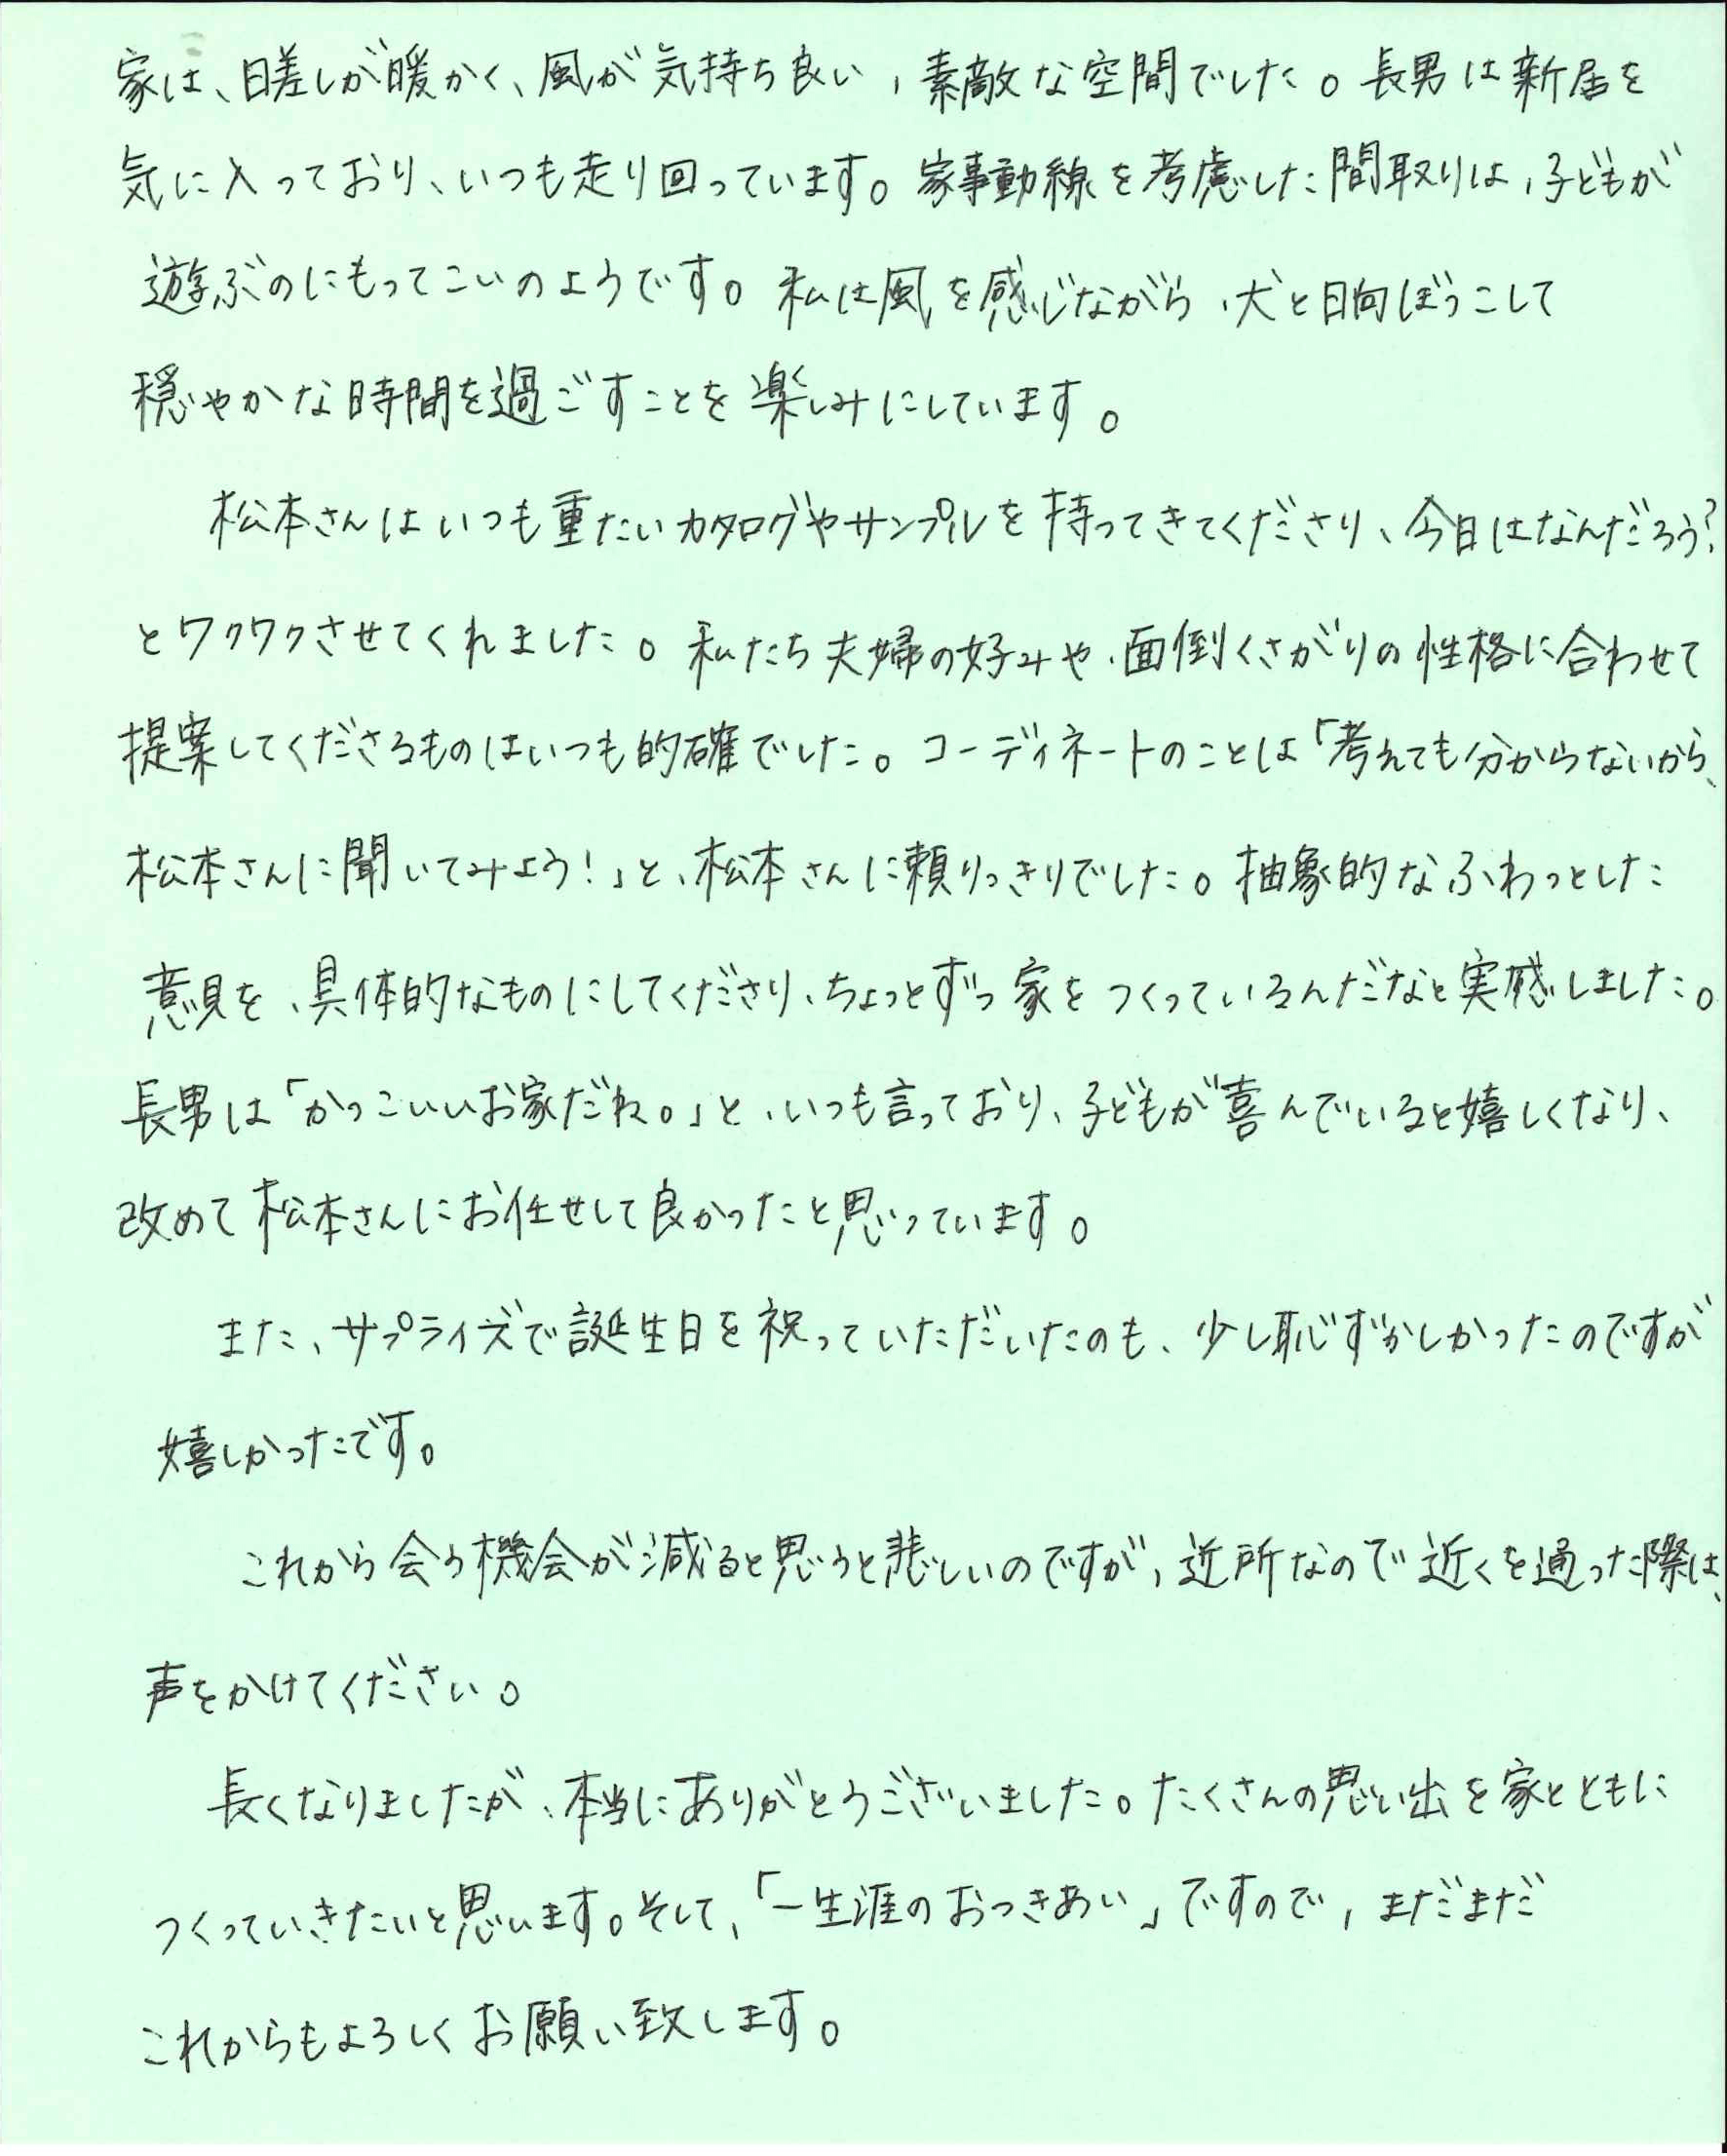 家は、日差しが暖かく、風が気持ち良い、素敵な空間でした。長男は新居を
気に入っており、いつも走り回っています。家事動線を考慮した間取りは、子どもが
遊ぶのにもってこいのようです。私は風を感じながら、犬と日向ぼっこして
穏やかな時間を過ごすことを楽しみにしています。
松本さんはいつも重たいカタログやサンプルを持ってきてくださり、今日はなんだろう?
とワクワクさせてくれました。私たち夫婦の好みや、面倒くさがりの性格に合わせて
提案してくださるものはいつも的確でした。コーディネートのことは「考えても分からないから、
松本さんに聞いてみよう!」と、松本さんに頼りっきりでした。抽象的なふわっとした
意見を、具体的なものにしてくださり、ちょっとずつ家をつくっているんだなと実感しました。
長男は「かっこいいお家だね。」と、いつも言っており、子どもが喜んでいると嬉しくなり、
改めて松本さんにお任せして良かったと思っています。
また、サプライズで誕生日を祝っていただいたのも、少し恥ずかしかったのですが
嬉しかったです。
これから会う機会が減ると思うと悲しいのですが、近所なので近くを通った際は、
声をかけてください。
長くなりましたが、本当にありがとうございました。たくさんの思い出を家とともに
つくっていきたいと思います。そして、「一生涯のおつきあい」ですので、まだまだ
これからもよろしくお願い致します。